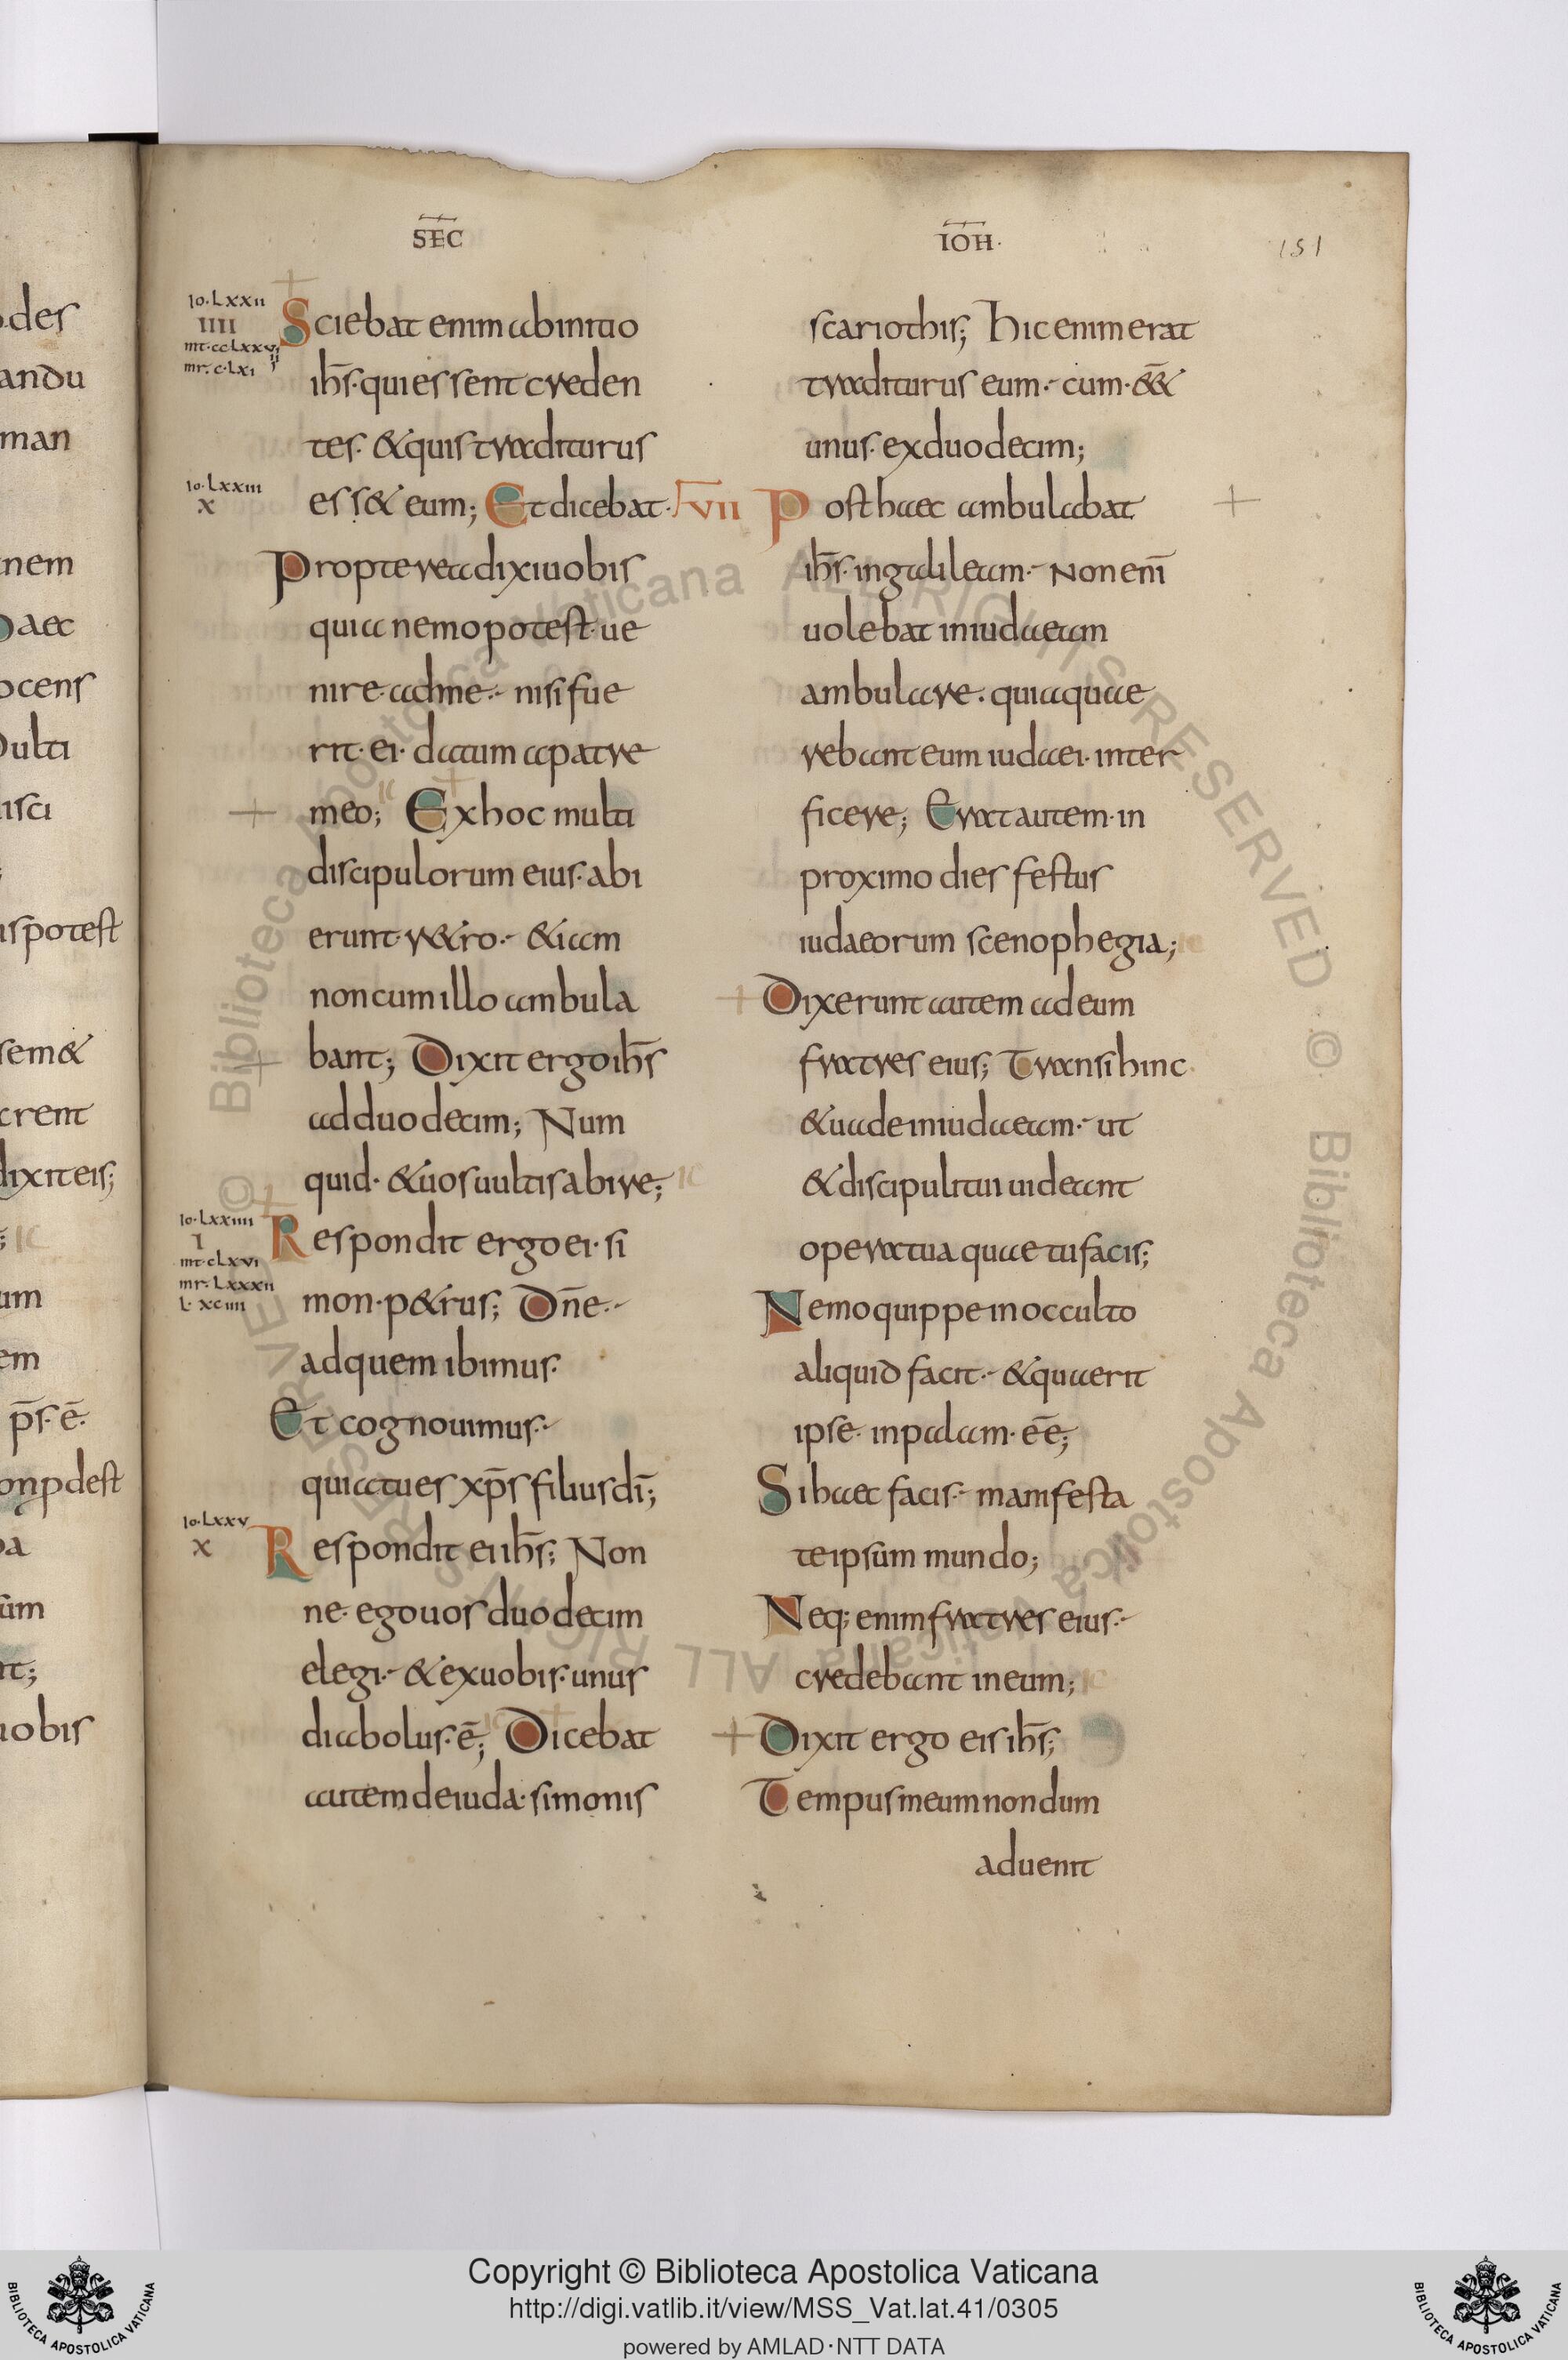 SEC̄
IOH̄·
151
Io·Lxxii
IIII
mt·ccLxxvii
mr·c·Lxi
Sciebat enim abinitio
ihs̄·qui essent creden
tes· &quis traditurus
ess& eum; Et dicebat·
Io·Lxxiii
x
Propterea dixi uobis
quia nemo potest· ue
nire· adme·- nisi fue
rit· ei· datum apatre
meo; Ex hoc multi
discipulorum eius· abi
erunt· r&ro·- &iam
non cum illo ambula
bant; Dixit ergo ihs̄
ad duodecim; Num
quid· &uos uultis abire;
Io·Lxxiiii
I
mt·cLxvi
mr·Lxxxii
L·xciiii
Respondit ergo ei· si
mon· p&rus; Dn̄e·-
ad quem ibimus·
Et cognouimus·-
quia tu es xp̄s filius dī;
Io·Lxxv
x
Respondit ei ihs̄; Non
ne· ego uos duodecim
elegi·- &ex uobis· unus
diabolus· ē; Dicebat
autem de iuda· simonis
scariothis; hic enim erat
traditurus eum·- cum· &&̄
unus· ex duodecim;
VII Post haec ambulabat
ihs̄· in galileam·- Non enī
uolebat in iudaeam
ambulare· quia quae
rebant eum iudaei· inter
ficere; Erat autem· in
proximo dies festus
iudaeorum scenophegia;
Dixerunt autem ad eum
fratres eius; Transi hinc·
&uade in iudaeam·- ut
&discipuli tui uideant
opera tua quae tu facis;
Nemo quippe in occulto
aliquid facit·- &quaerit
ipse· in palam· eē;
Si haec facis·- manifesta
te ipsum mundo;
Neq; enim fratres eius·-
credebant in eum;
Dixit ergo eis ihs̄;
Tempus meum nondum
aduenit
Copyright © Biblioteca Apostolica Vaticana
http://digi.vatlib.it/view/MSS_Vat.lat.41/0305
powered by AMLAD·NTT DATA
BIBLIOTECA APOSTOLICA VATICANA
BIBLIOTECA APOSTOLICA VATICANA